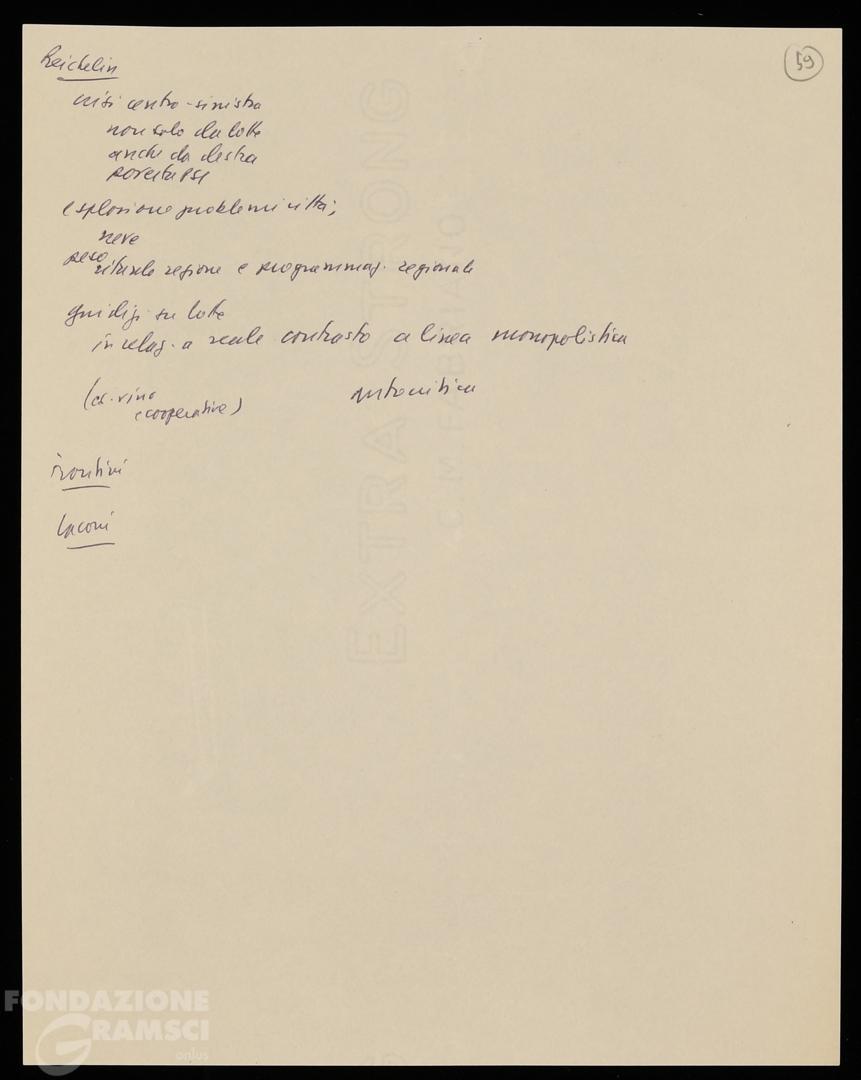 59
Reichlin
crisi centro-sinistra
non solo da lotte
anche da destra
esplosione problemi città;
neve
peso
attuale regione e programmaz. regionale
giudizi su lotte
in relaz. a reale contrasto a linea monopolistica
(cr. vino autocritica
e cooperative)
Laconi
EXTRA STRONG
C.M. FABRIANO
FONDAZIONE
GRAMSCI
onlus